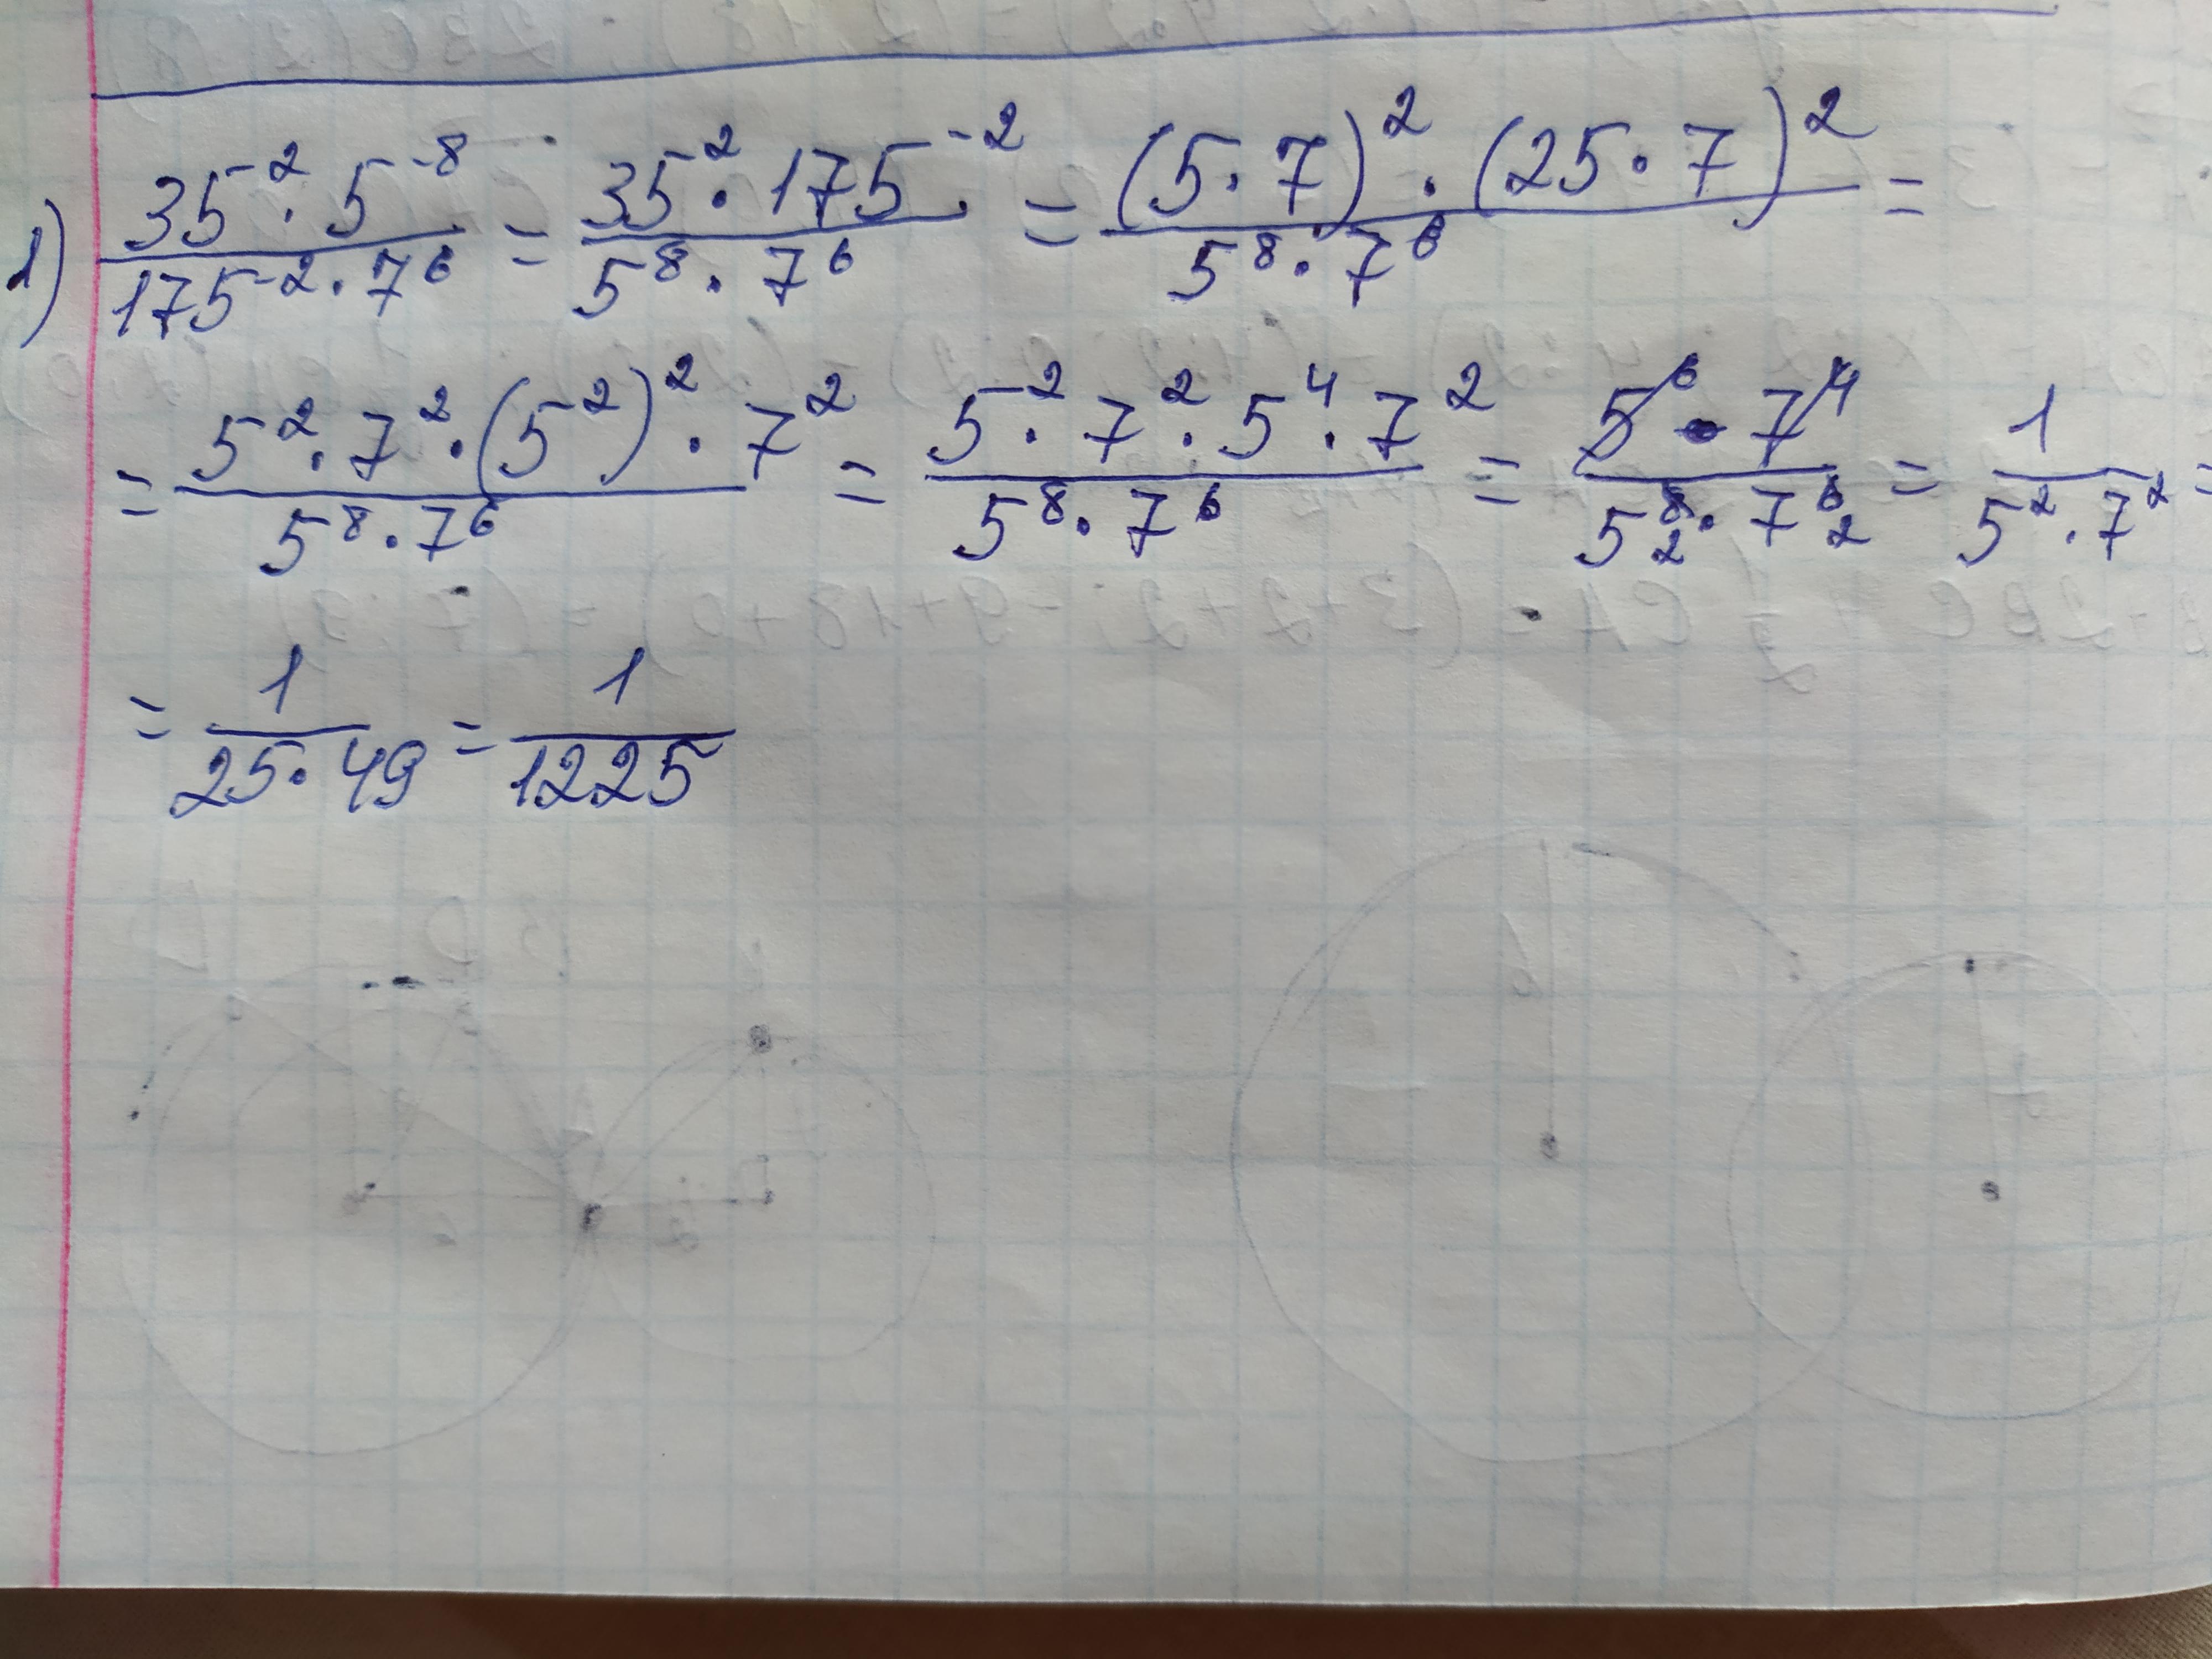 1) \frac{35^2 \cdot 5^{-8}}{175^{-2} \cdot 7^6} = \frac{35^2 \cdot 175^{-2}}{5^8 \cdot 7^6} = \frac{(5 \cdot 7)^2 \cdot (25 \cdot 7)^2}{5^8 \cdot 7^6} =
= \frac{5^2 \cdot 7^2 \cdot (5^2)^2 \cdot 7^2}{5^8 \cdot 7^6} = \frac{5^2 \cdot 7^2 \cdot 5^4 \cdot 7^2}{5^8 \cdot 7^6} = \frac{5^6 \cdot 7^4}{5^8_2 \cdot 7^6_2} = \frac{1}{5^2 \cdot 7^2} =
= \frac{1}{25 \cdot 49} = \frac{1}{1225}